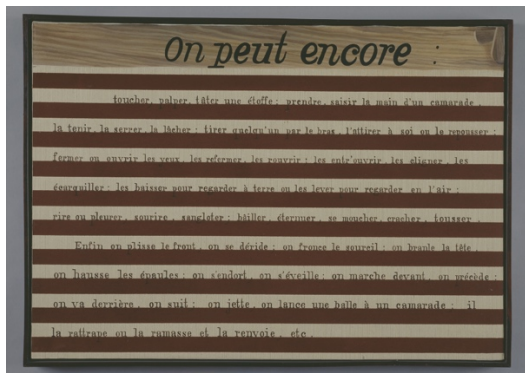 On peut encore :
toucher, palper, tâter une étoffe ; prendre, saisir la main d'un camarade,
la tenir, la serrer, la lâcher ; tirer quelqu'un par le bras, l'attirer à soi ou le repousser ;
fermer ou ouvrir les yeux, les refermer, les rouvrir ; les entr'ouvrir, les cligner, les
écarquiller ; les baisser pour regarder à terre ou les lever pour regarder en l'air ;
rire ou pleurer, sourire, sangloter ; bâiller, éternuer, se moucher, cracher, tousser.
Enfin on plisse le front, on se déride ; on fronce le sourcil ; on branle la tête
on hausse les épaules ; on s'endort, on s'éveille ; on marche devant, on précède ;
on va derrière, on suit ; on jette, on lance une balle à un camarade ; il
la rattrape ou la ramasse et la renvoie, etc.